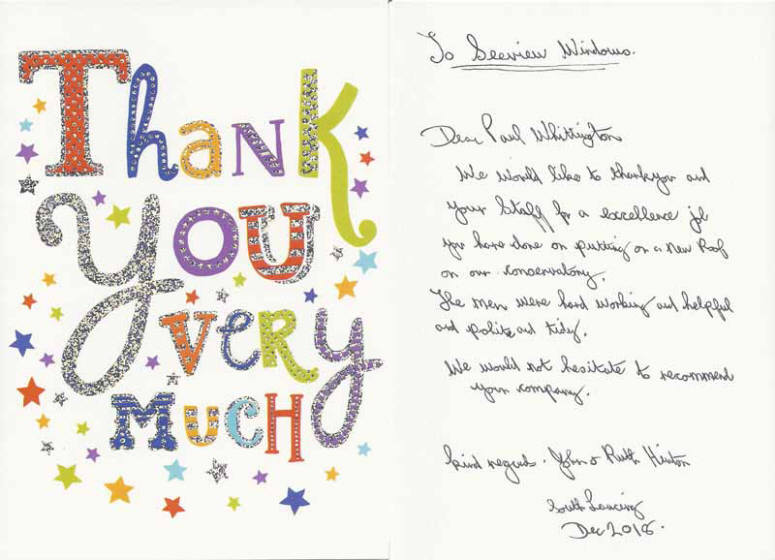 Thank
you
very
much
To Seeview Windows.
Dear Paul Whittington
We would like to thankyou and
your Staff for a excellence job
you have done on putting on a new Roof
on our conservatory.
The men were hard working and helpful
and polite and tidy.
We would not hesitate to recommend
your company.
kind regards. John & Ruth Hinton
South Lancing
Dec 2018.